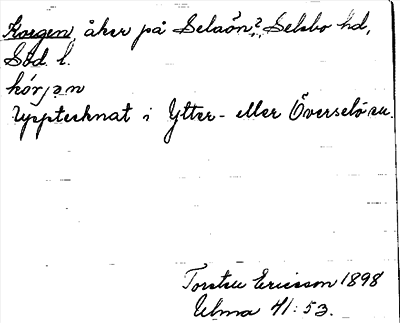 Korgen, åker på Selaön?, Selebo hd,
Söd. l.
kórjən
Upptecknat i Ytter- eller Överselö sn.
Torsten Ericsson 1898
Ulma 41:53.